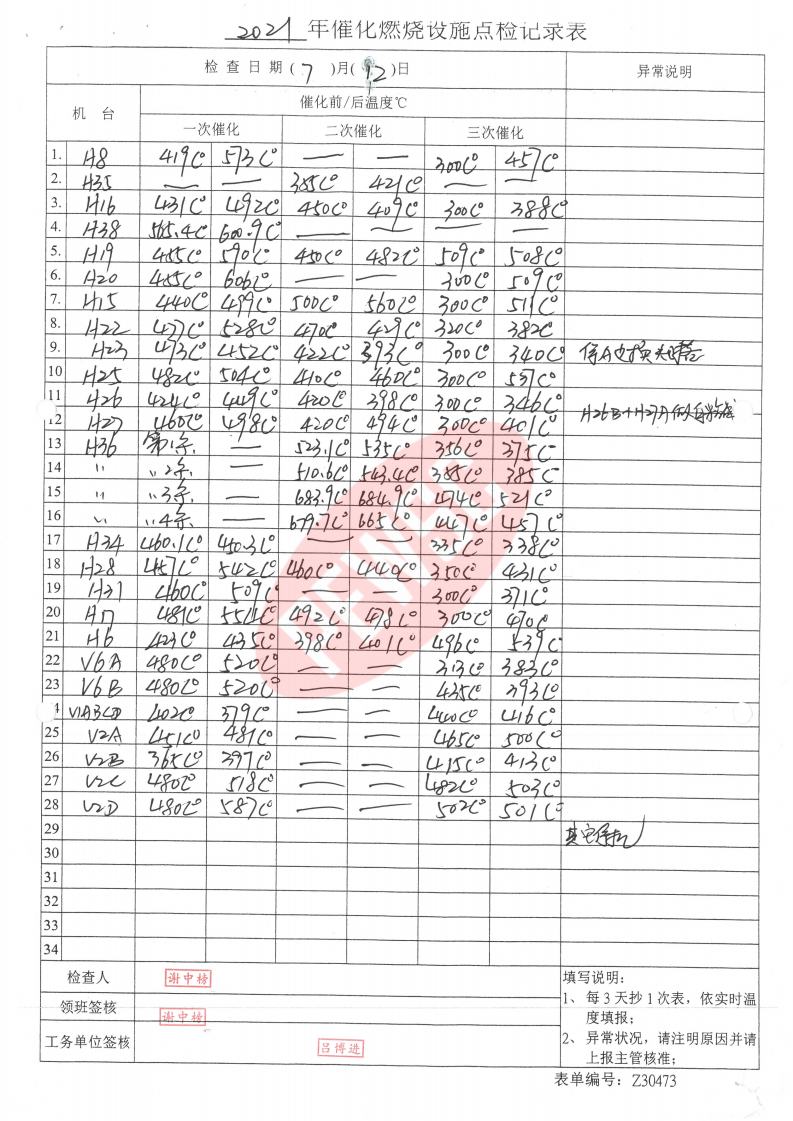 2021 年催化燃烧设施点检记录表
检 查 日 期 ( 7 )月( 12 )日 异常说明
机 台 催化前/后温度℃
一次催化 二次催化 三次催化
1. H8 419C° 573C° — — 300C° 457C°
2. H35 — — 385C° 421C° — —
3. H16 431C° 492C° 450C° 409C° 300C° 388C°
4. H38 565.4C° 600.9C° — — — —
5. H19 455C° 590C° 450C° 482C° 509C° 508C°
6. H20 455C° 606C° — — 300C° 509C°
7. H15 440C° 499C° 500C° 560C° 300C° 511C°
8. H22 477C° 528C° 470C° 429C° 320C° 382C°
9. H23 473C° 452C° 422C° 393C° 300C° 340C°
10 H25 482C° 504C° 410C° 460C° 300C° 537C°
11 H26 424C° 449C° 420C° 398C° 300C° 346C°
12 H27 460C° 498C° 420C° 494C° 300C° 401C°
13 H36 第1条 — 523.1C° 535C° 356C° 375C°
14 〃 〃2条 — 510.6C° 543.4C° 385C° 385C°
15 〃 〃3条 — 683.9C° 684.9C° 474C° 521C°
16 〃 〃4条 — 679.7C° 665C° 447C° 457C°
17 H34 460.1C° 450.3C° — — 335C° 338C°
18 H28 457C° 542C° 460C° 440C° 350C° 431C°
19 H31 460C° 509C° — — 300C° 371C°
20 H17 481C° 551C° 492C° 478C° 300C° 470C°
21 H6 423C° 435C° 398C° 401C° 496C° 539C°
22 V6A 480C° 520C° — — 313C° 383C°
23 V6B 480C° 520C° — — 435C° 393C°
4 V1ABCD 402C° 379C° — — 440C° 416C°
25 V2A 451C° 481C° — — 465C° 500C°
26 V2B 365C° 397C° — — 415C° 413C°
27 V2C 480C° 518C° — — 482C° 503C°
28 V2D 480C° 587C° — — 502C° 501C°
29 其它停机
30
31
32
33
34
检查人 谢中榜
领班签核 谢中榜
工务单位签核 吕博进
填写说明:
1、 每 3 天抄 1 次表，依实时温
度填报;
2、 异常状况，请注明原因并请
上报主管核准;
表单编号: Z30473